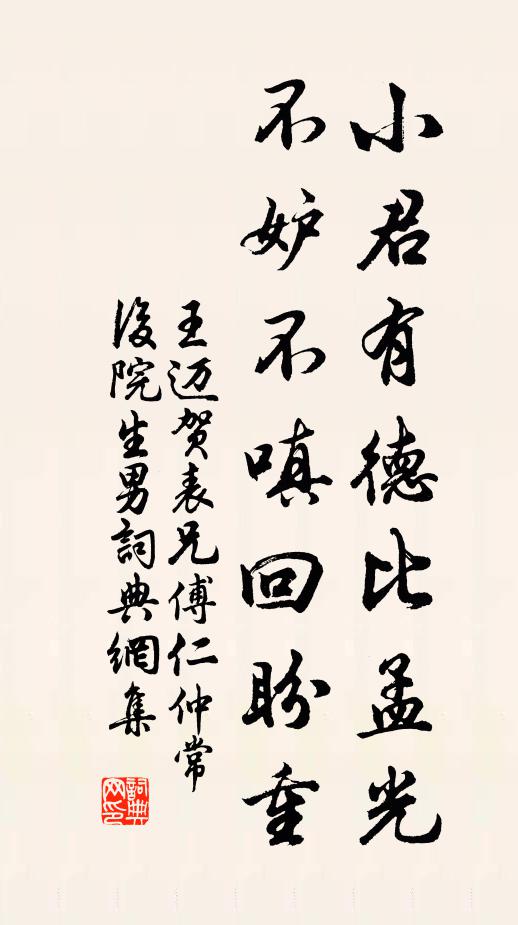 小君有德比孟光
不妒不嗔回盼重
王迈贺表兄傅仁仲常
後院生男詞典網集
詞典
网印